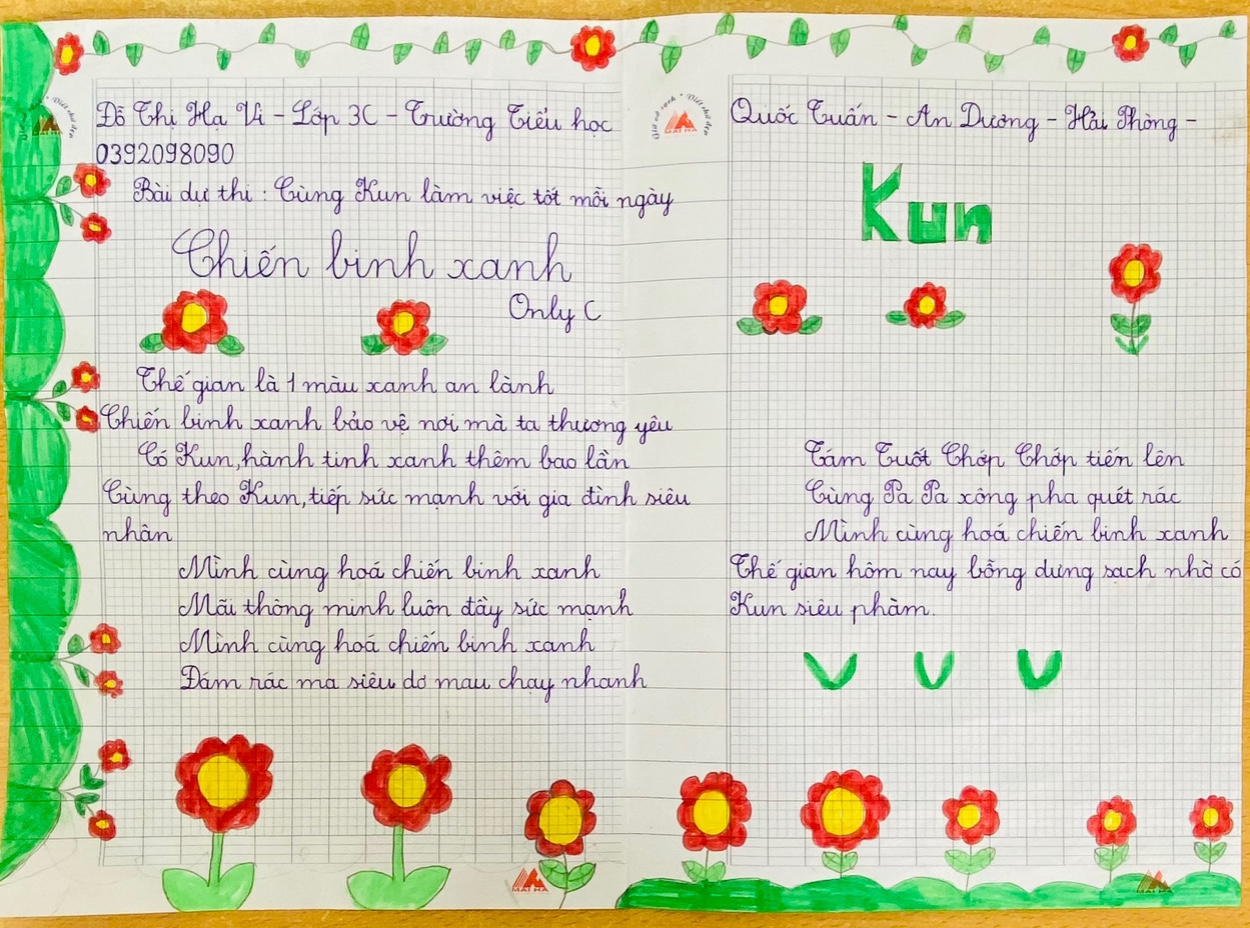 Đỗ Thị Hạ Vi - Lớp 3C - Trường Tiểu học
0392098090
Bài dự thi : Cùng Kun làm việc tốt mỗi ngày
Chiến binh xanh
Only C
Thế gian là 1 màu xanh an lành
Chiến binh xanh bảo vệ nơi mà ta thương yêu
Có Kun, hành tinh xanh thêm bao lần
Cùng theo Kun, tiếp sức mạnh với gia đình siêu
nhân
Mình cùng hoá chiến binh xanh
Mãi thông minh luôn đầy sức mạnh
Mình cùng hoá chiến binh xanh
Đám rác ma siêu dơ mau chạy nhanh
MAI HA
Quốc Tuấn - An Dương - Hải Phòng -
Kun
Tám Tuốt Chớp Chớp tiến lên
Cùng Pa Pa xông pha quét rác
Mình cùng hoá chiến binh xanh
Thế gian hôm nay bỗng dưng sạch nhờ có
Kun siêu phàm.
MAI HA